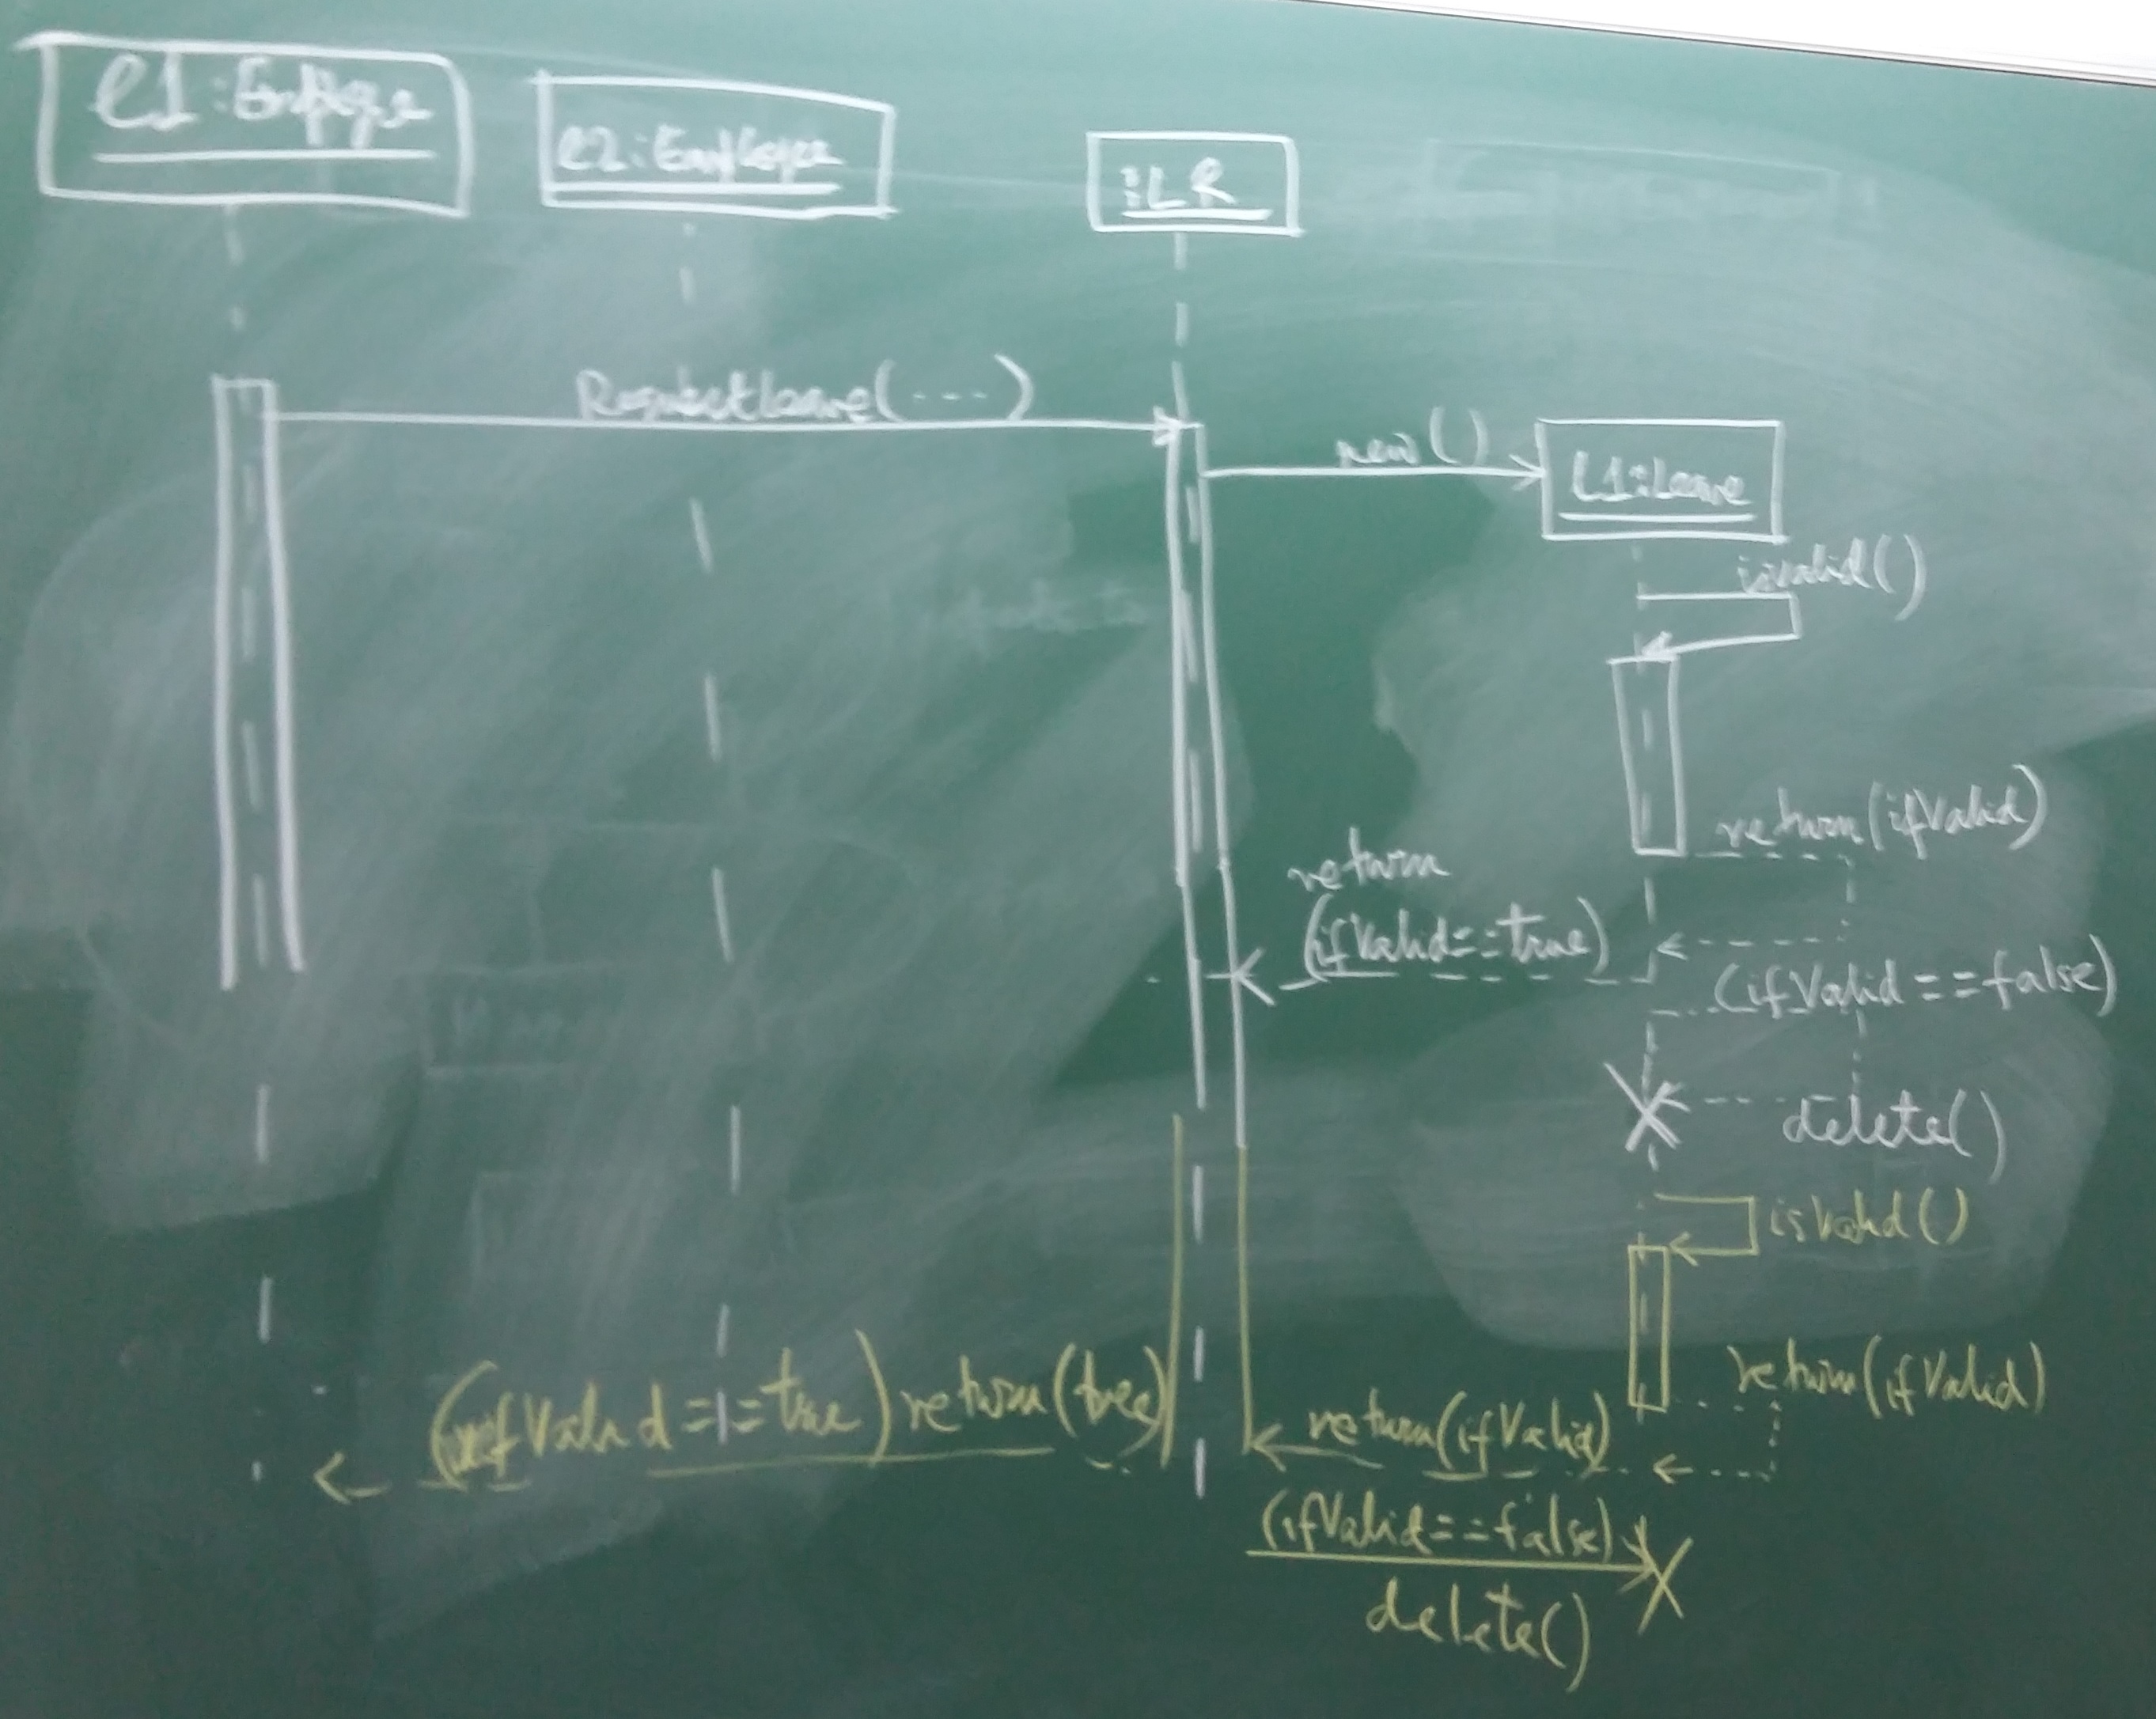 e1:Employee
e2:Employee
:LR
RequestLeave(----)
new()
L1:Leave
isvalid()
return(ifValid)
return
(ifValid==true)
(ifValid==false)
delete()
isValid()
return(ifValid)
(ifValid==true) return(true)
return(ifValid)
(ifValid==false)
delete()